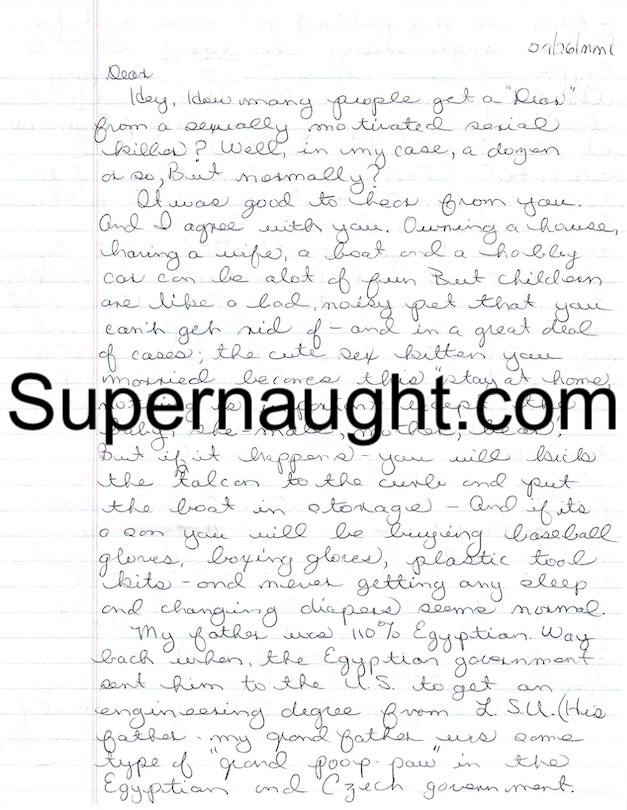 09/26/mm1
Dear
Hey, How many people get a "Dear"
from a sexually motivated serial
killer? Well, in my case, a dozen
or so, But normally?
It was good to hear from you.
And I agree with you. Owning a house,
having a wife, a boat and a hobby
car can be alot of fun But children
are like a bad, noisy pet that you
can't get rid of - and in a great deal
of cases; the cute sex kitten you
married becomes this "stay at home,
Supernaught.com
But if it happens - you will kick
the Falcon to the curb and put
the boat in storage - And if its
a son you will be buying baseball
gloves, boxing gloves, plastic tool
kits - and never getting any sleep
and changing diapers seems normal.
My father was 110% Egyptian. Way
back when, the Egyptian government
sent him to the U.S. to get an
engineering degree from L.S.U. (His
father - my grand father was some
type of "grand poop-paw" in the
Egyptian and Czech government.